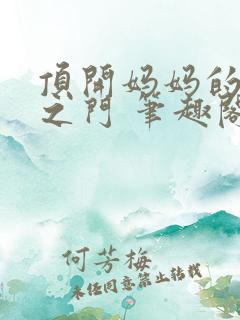 頂開媽媽的
之門 筆趣閣
何芳梅
未經同意禁止轉載